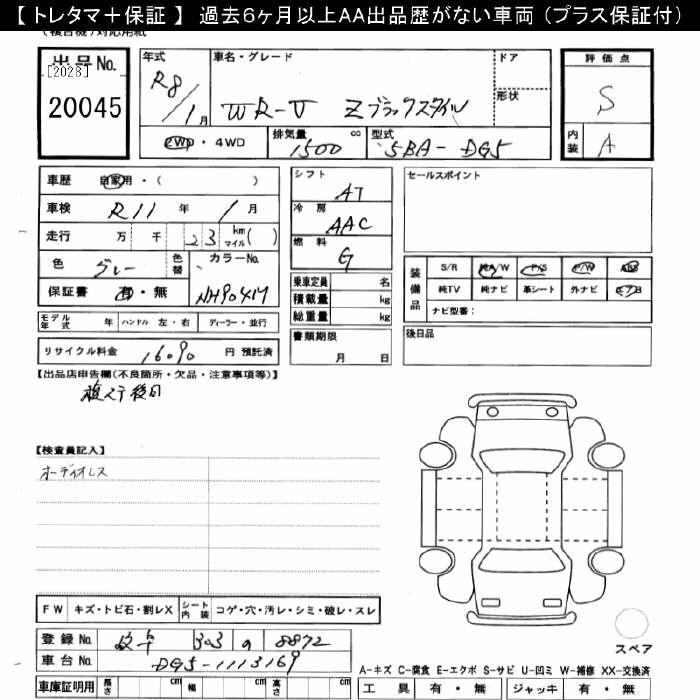 【 トレタマ＋保証 】 過去６ヶ月以上ＡＡ出品歴がない車両（プラス保証付）
(複合機)対応用紙
出品No.
[2028]
20045
年式
R8/1月
車名・グレード
WR-V Zブラックスタイル
ドア
形状
2WD・4WD
排気量
1500 cc
型式
5BA-DG5
評価点
S
内装
A
車歴 自家用・( )
車検 R11年 1月
走行 万 千 23 km マイル ( )
色 グレー
色替
カラーNo.
NH904M
保証書 有・無
モデル年式 年 ハンドル 左・右 ディーラー・並行
リサイクル料金 16090 円 預託済
シフト
AT
冷房
AAC
燃料
G
乗車定員 名
積載量 kg
総重量 kg
書類期限
月 日
セールスポイント
装備品
S/R 純A/W P/S P/W ABS
純TV 純ナビ 革シート 外ナビ エアB
ナビ型番：
後日品
【出品店申告欄(不良箇所・欠品・注意事項等)】
後日
【検査員記入】
オーディオレス
FW キズ・トビ石・割レX シート内装 コゲ・穴・汚レ・シミ・破レ・スレ
登録No. 岐阜 303 の 8872
車台No. DG5-1113169
車庫証明用 長さ cm 幅 cm 高さ cm
スペア
A-キズ C-腐食 E-エクボ S-サビ U-凹ミ W-補修 XX-交換済
工具 有・無 ジャッキ 有・無